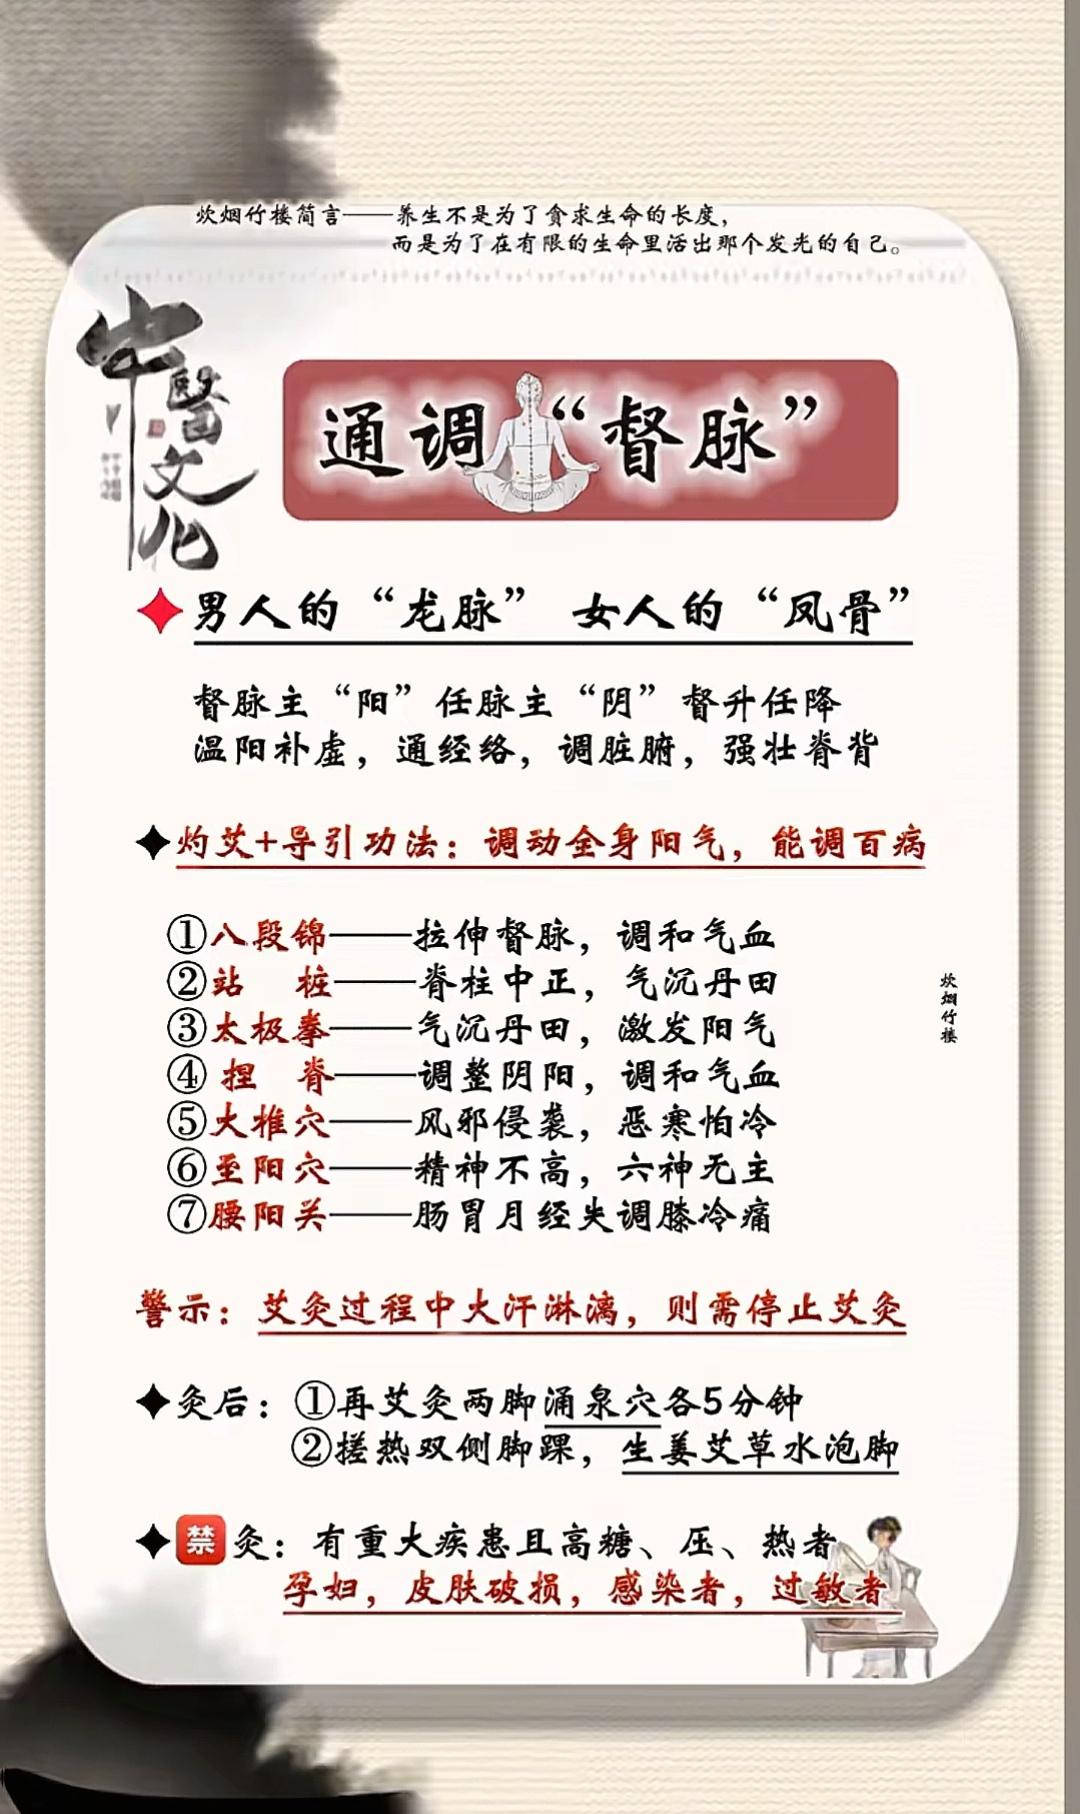 炊烟竹楼简言——养生不是为了贪求生命的长度，
而是为了在有限的生命里活出那个发光的自己。
中醫文化
通调“督脉”
男人的“龙脉” 女人的“凤骨”
督脉主“阳”任脉主“阴”督升任降
温阳补虚，通经络，调脏腑，强壮脊背
灼艾+导引功法：调动全身阳气，能调百病
①八段锦——拉伸督脉，调和气血
②站 桩——脊柱中正，气沉丹田
③太极拳——气沉丹田，激发阳气
④捏 脊——调整阴阳，调和气血
⑤大椎穴——风邪侵袭，恶寒怕冷
⑥至阳穴——精神不高，六神无主
⑦腰阳关——肠胃月经失调膝冷痛
炊烟竹楼
警示：艾灸过程中大汗淋漓，则需停止艾灸
灸后：①再艾灸两脚涌泉穴各5分钟
②搓热双侧脚踝，生姜艾草水泡脚
禁灸：有重大疾患且高糖、压、热者
孕妇，皮肤破损，感染者，过敏者